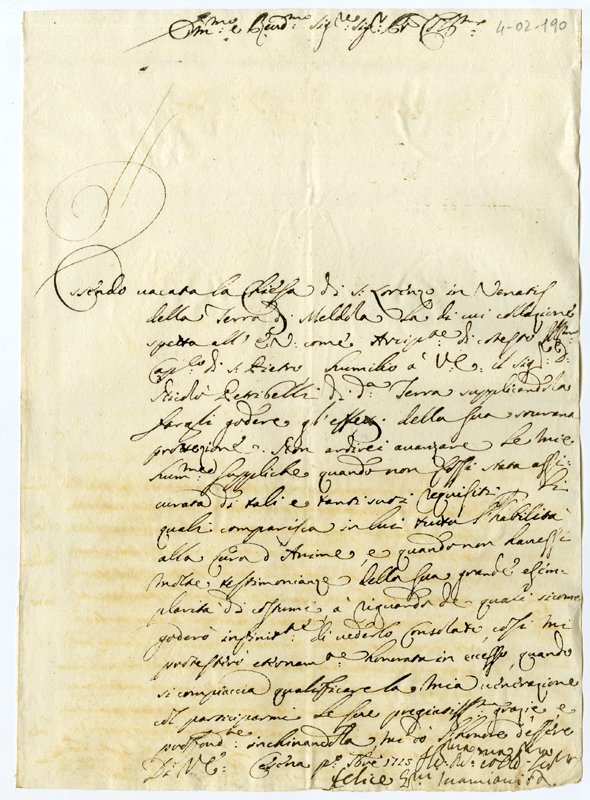 Em.mo e Reud.mo Sig.re Sig.r
4-02-190
Essendo uacata la Chiesa di S. Lorenzo in
della Terra di Meldola la di cui collazione
spetta all' E.V. come Arcip.te di cotesto
di S. Pietro humilio à V.E. il Sig.r D.
Nicolò di d.a Terra supplicandola
fargli godere gl'effetti della sua sourana
protezione. Non ardirei auanzare le mie
hum.me suppliche quando non fossi stata assi-
curata di tali e tanti suoi requisiti
quali comparisca in lui tutta l'habilità
alla Cura d'Anime, e quando non hauessi
molte testimonianze della sua grande esem-
plarità di costumi, à riguardo de quali sicome
goderò infinit.te di uederlo consolato, così mi
protesterò eternam.te honorata in eccesso, quando
si compiaccia qualificare la mia uenerazione
col participarmi le sue grazie e
inchinandola, mi do l'honore d'essere
Di V.E. 1725
Felice